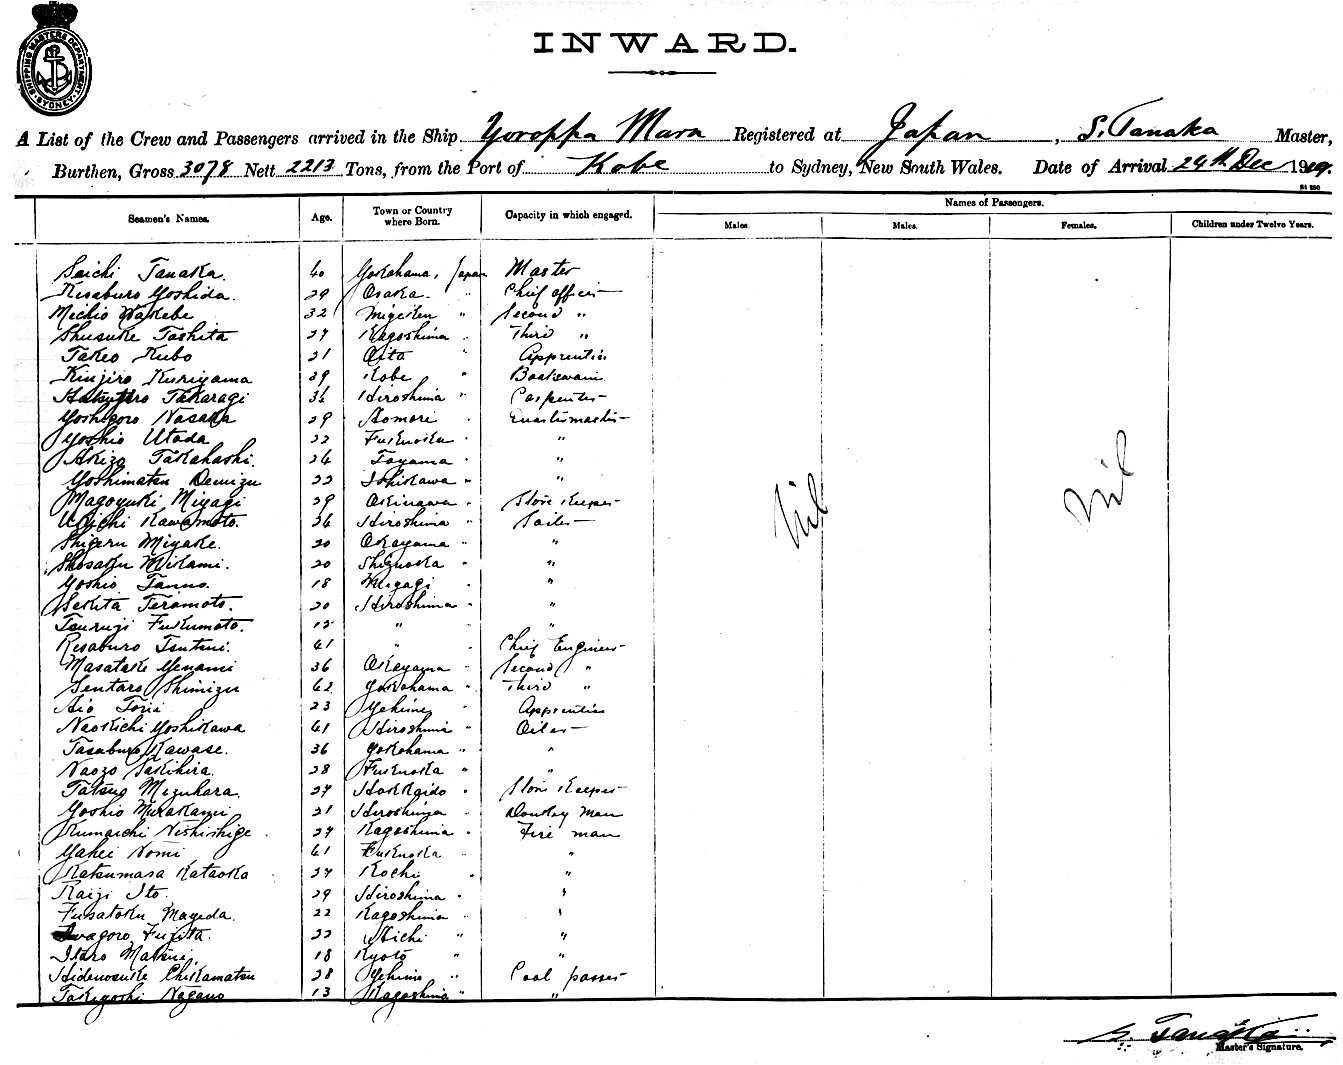 SHIPPING MASTERS DEPARTMENT
SYDNEY
INWARD.
A List of the Crew and Passengers arrived in the Ship Yoroppa Maru Registered at Japan, S. Tanaka Master,
Burthen, Gross 3078 Nett 2213 Tons, from the Port of Kobe to Sydney, New South Wales. Date of Arrival 24th Dec 1919.
Names of Passengers.
Seamen's Names. Age. Town or Country where Born. Capacity in which engaged. Males. Males. Females. Children under Twelve Years.
Seichi Tanaka. 40 Yokohama, Japan Master
Kisaburo Yoshida. 29 Osaka " Chief officer
Michio Wakebe 32 Migiken " Second "
Shusuke Tashita 27 Kagoshima " Third "
Takeo Kubo 21 Oita " Apprentice
Kinjiro Kuriyama 29 Kobe " Boatswain
Takaragi 36 Hiroshima " Carpenter
Yoshigoro Nasaka 29 Aomori " Quartermaster
Yoshio Utada 22 Fukuoka " "
Akizo Takahashi. 26 Toyama " "
Yoshimatsu Demizu 22 Ishikawa " "
Magoyuki Miyagi 29 Okinawa " Store Keeper
Kawamoto. 26 Hiroshima " Sailor
Shigeru Miyake. 20 Okayama " "
Shosaku Mikami. 20 Shizuoka " "
Yoshio Tanno. 18 Miyagi " "
Sekita Teramoto. 20 Hiroshima " "
Tsurugi Fukumoto. " "
Risaburo Tsutsui. 41 " " Chief Engineer
Masatake Yenami 36 Okayama " Second "
Sentaro Shimizu 42 Yokohama " Third "
Aio Torii 23 Yehime " Apprentice
Naokichi Yoshikawa 41 Hiroshima " Oiler
Tasaburo Kawase. 36 Yokohama " "
Naozo Sakihira. 28 Fukuoka " "
Tatsuo Mizuhara. 27 Hokkaido " Store Keeper
Yoshio Murakami 21 Hiroshima " Donkey man
Kumaichi Nishishige 27 Kagoshima " Fire man
Yahei Nomi 41 Fukuoka " "
Katsumasa Kataoka 27 Kochi " "
Kaiji Ito. 29 Hiroshima " "
Fusatoku Mayeda. 22 Kagoshima " "
Iwagoro Fujita. 22 Aichi " "
Itaro Matsui. 18 Kyoto " "
Hidenosuke Chikamatsu 28 Yehime " Coal passer
Takiyoshi Nagano 13 Kagoshima " "
Nil
Nil
S. Tanaka
Master's Signature.